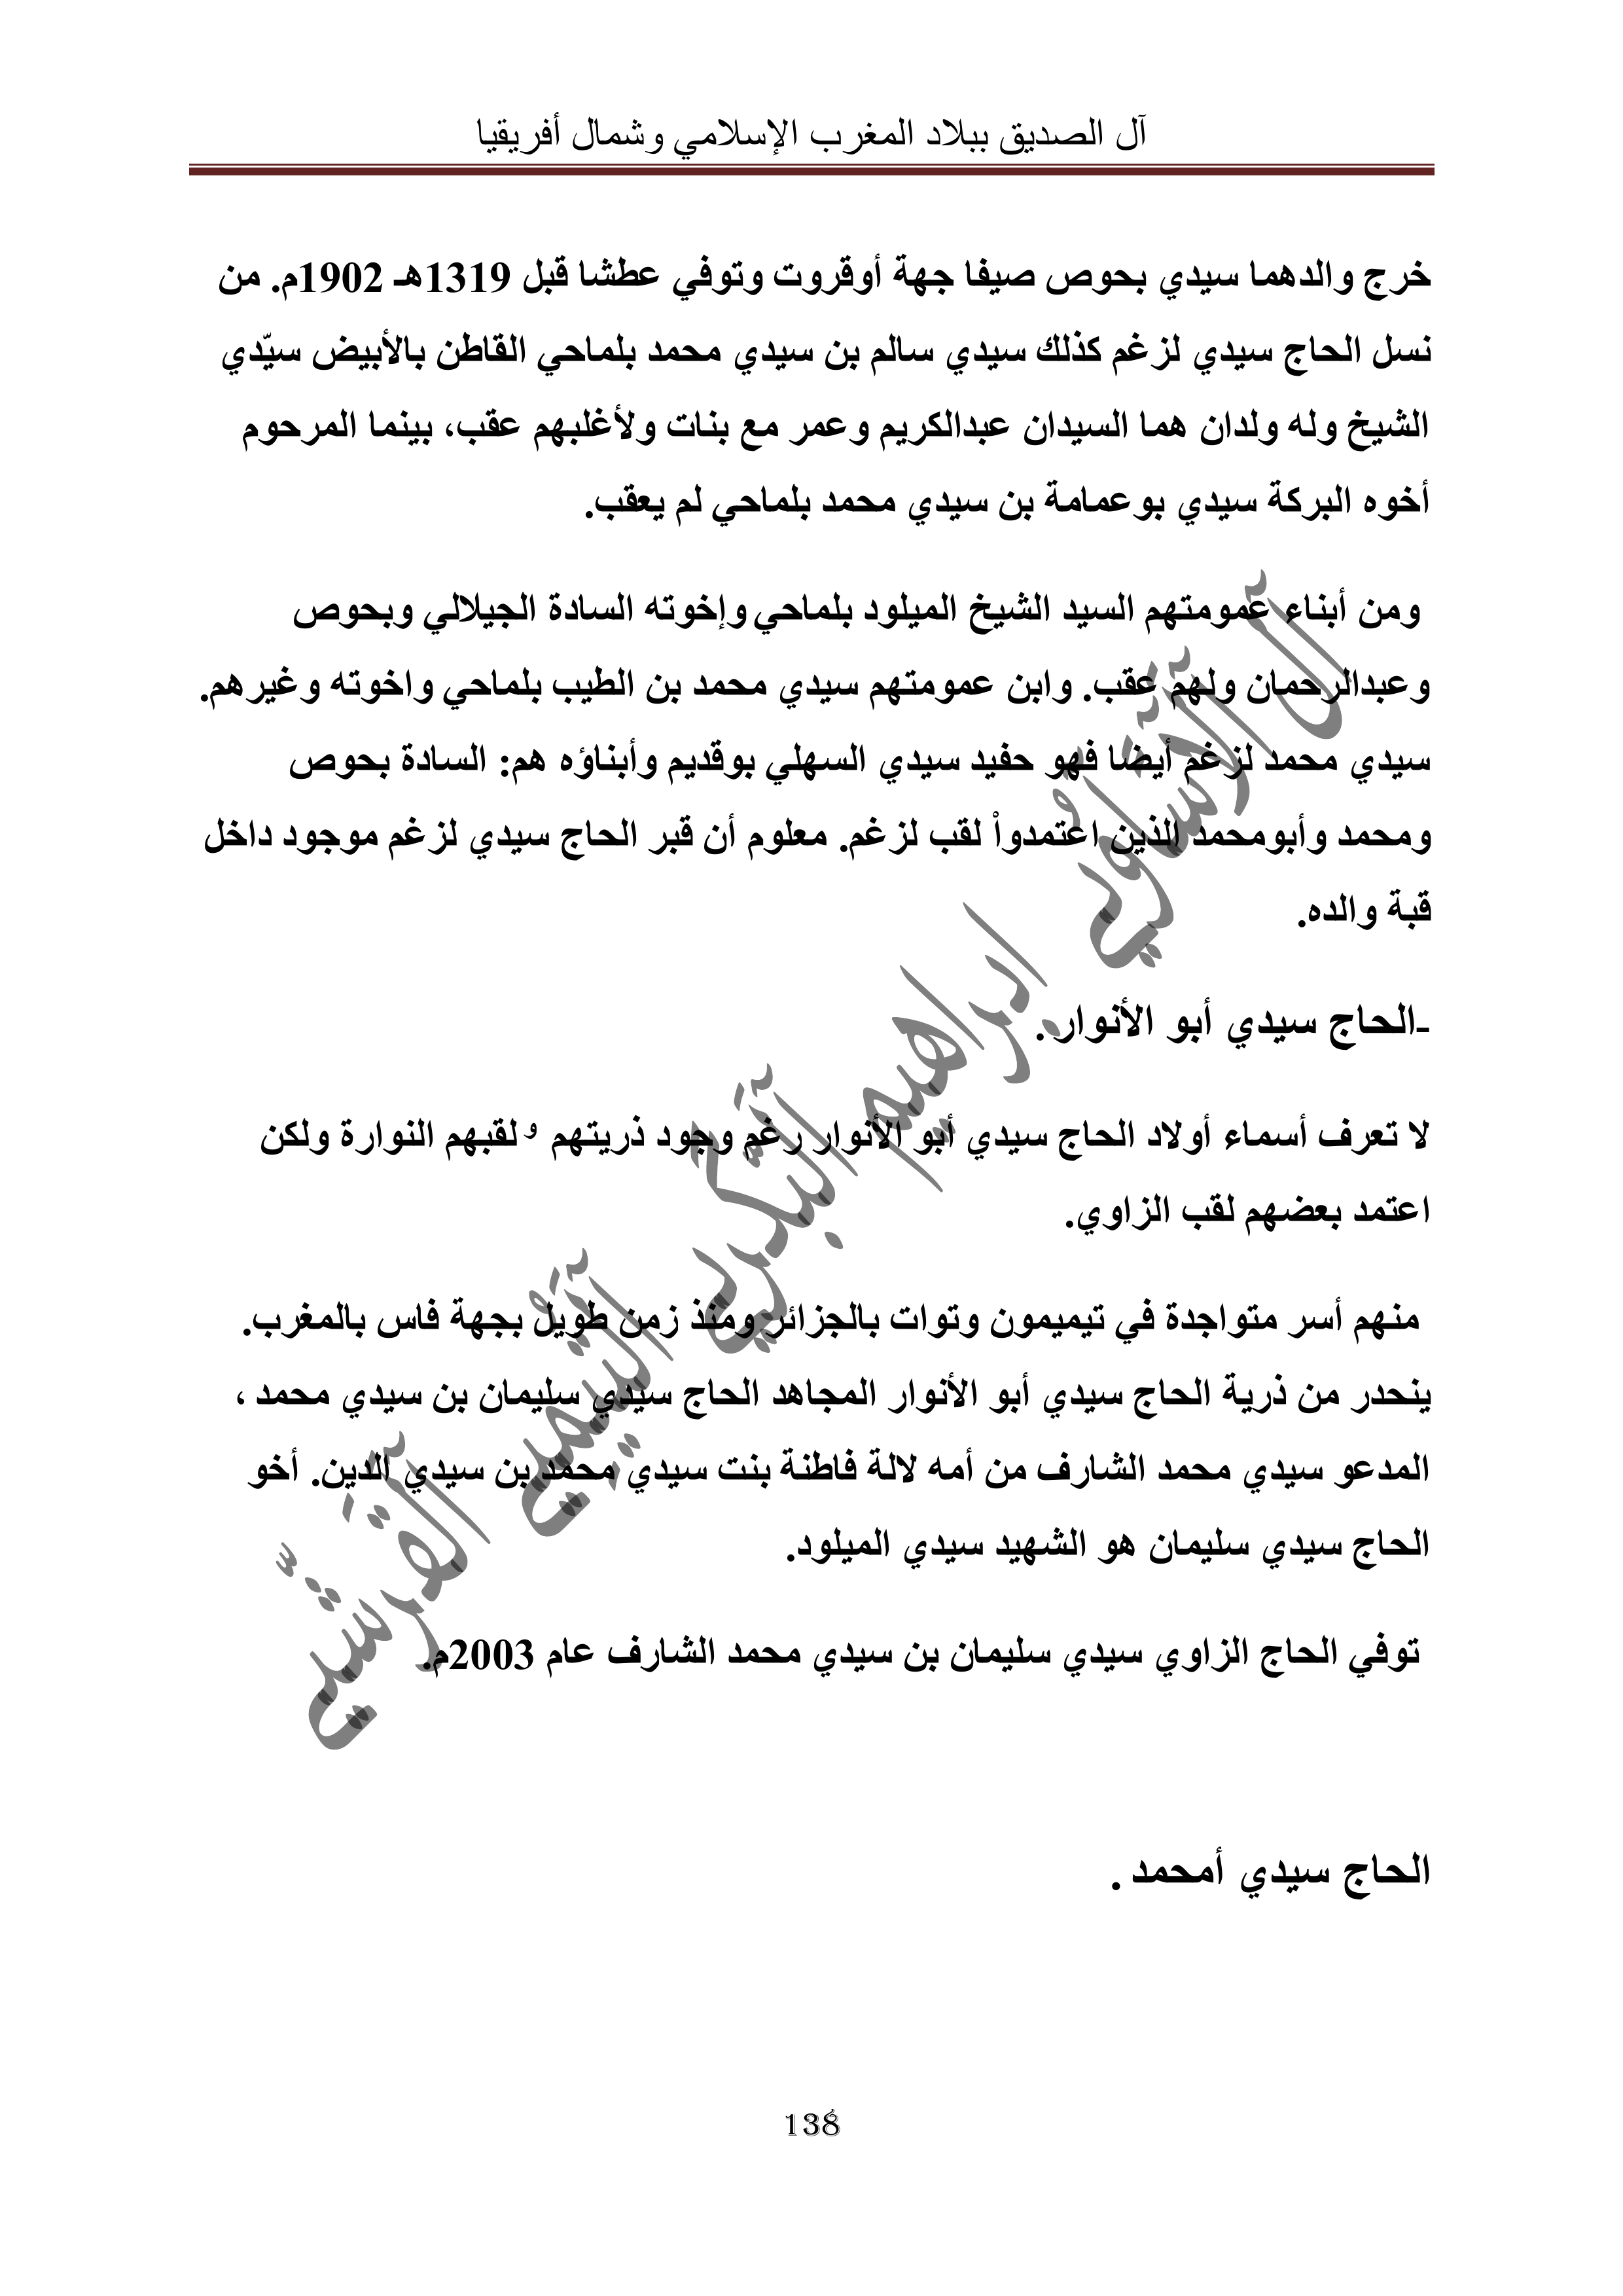 آل الصديق ببلاد المغرب الإسلامي وشمال أفريقيا
خرج والدهما سيدي بحوص صيفا جهة أوقروت وتوفي عطشا قبل 1319هـ 1902م. من
نسل الحاج سيدي لزغم كذلك سيدي سالم بن سيدي محمد بلماحي القاطن بالأبيض سيّدي
الشيخ وله ولدان هما السيدان عبدالكريم وعمر مع بنات ولأغلبهم عقب، بينما المرحوم
أخوه البركة سيدي بوعمامة بن سيدي محمد بلماحي لم يعقب.
ومن أبناء عمومتهم السيد الشيخ الميلود بلماحي وإخوته السادة الجيلالي وبحوص
وعبدالرحمان ولهم عقب. وابن عمومتهم سيدي محمد بن الطيب بلماحي واخوته وغيرهم.
سيدي محمد لزغم أيضا فهو حفيد سيدي السهلي بوقديم وأبناؤه هم: السادة بحوص
ومحمد وأبومحمد الذين اعتمدوأ لقب لزغم. معلوم أن قبر الحاج سيدي لزغم موجود داخل
قبة والده.
-الحاج سيدي أبو الأنوار .
لا تعرف أسماء أولاد الحاج سيدي أبو الأنوار رغم وجود ذريتهم و لقبهم النوارة ولكن
اعتمد بعضهم لقب الزاوي.
منهم أسر متواجدة في تيميمون وتوات بالجزائر ومنذ زمن طويل بجهة فاس بالمغرب.
ينحدر من ذرية الحاج سيدي أبو الأنوار المجاهد الحاج سيدي سليمان بن سيدي محمد ،
المدعو سيدي محمد الشارف من أمه لالة فاطنة بنت سيدي محمد بن سيدي الدين. أخو
الحاج سيدي سليمان هو الشهيد سيدي الميلود.
توفي الحاج الزاوي سيدي سليمان بن سيدي محمد الشارف عام 2003م.
الحاج سيدي أمحمد .
138